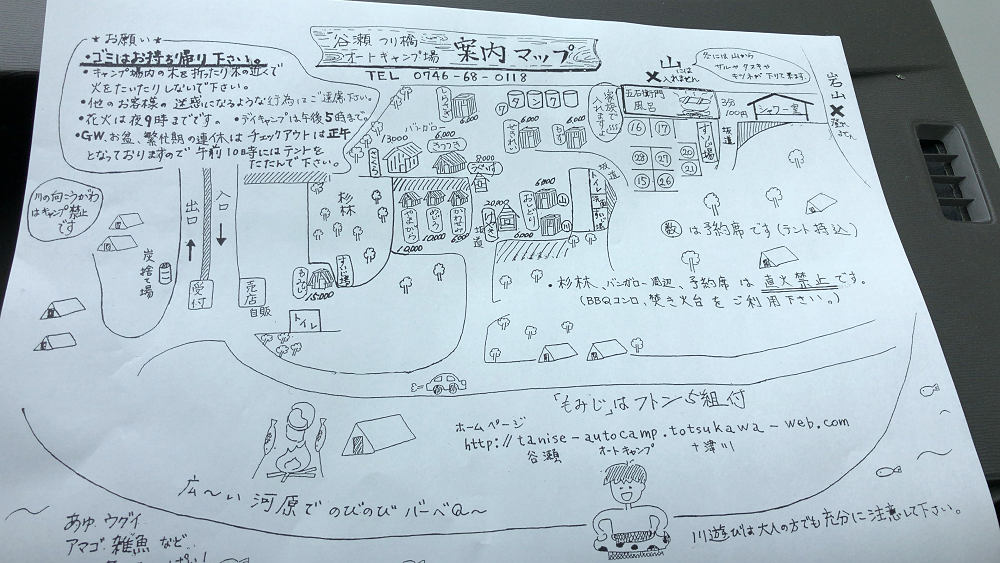 谷瀬つり橋
オートキャンプ場
案内マップ
TEL 0746-68-0118
★お願い★
・ゴミはお持ち帰り下さい。
・キャンプ場内の木を折ったり木の近くで
火をたいたりしないで下さい。
・他のお客様の迷惑になるような行為はご遠慮下さい。
・花火は夜9時までです。・デイキャンプは午後5時まで。
・GW、お盆、繁忙期の連休はチェックアウトは正午
となっておりますので午前10時にはテントを
たたんで下さい。
山には
入れません
冬には山から
サルやタヌキや
キツネが下りて来ます。
岩山
家族で
入れます
五右衛門
風呂
3分
100円
シャワー室
坂道
16 17
28 27 20
21
15 26
バンガロー
13000
6,000
8000
6,000
6,000
タンク
杉林
10,000
10,000
坂道
6,000
6,000
トイレ
坂道
川の向こうがわ
はキャンプ禁止
です
出口
入口
炭捨て場
受付
売店
自販
もみじ
15000
すいじ場
トイレ
数は予約席です(テント持込)
・杉林、バンガロー周辺、予約席は直火禁止です。
(BBQコンロ、焚き火台をご利用下さい。)
「もみじ」はフトン5組付
ホームページ
http://tanise-autocamp.totsukawa-web.com
谷瀬 オートキャンプ 十津川
広〜い河原でのびのびバーベQ〜
あゆ、ウグイ
アマゴ、雑魚など
川遊びは大人の方でも充分に注意して下さい。